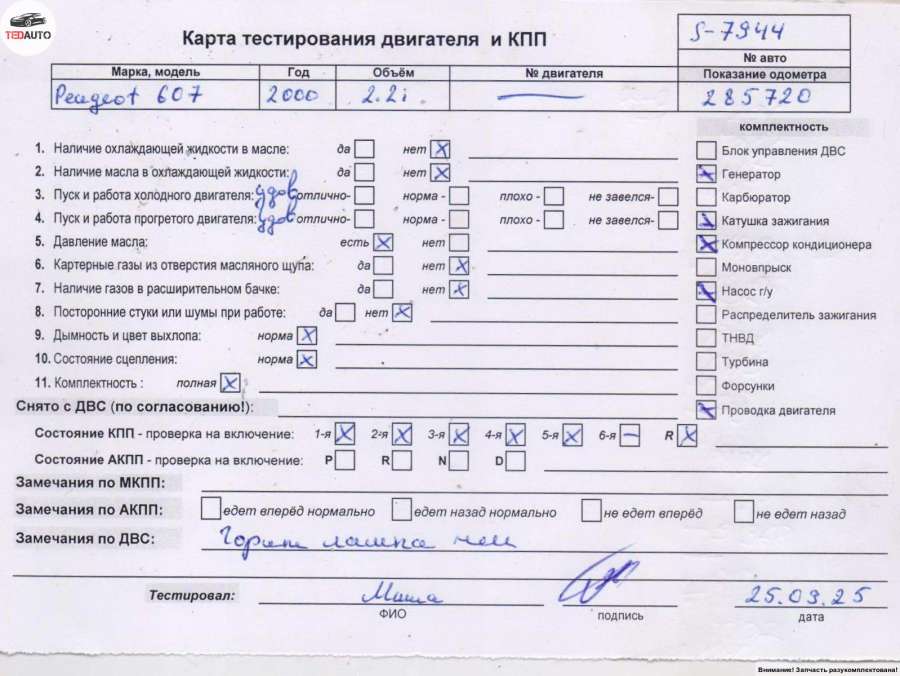 TEDAUTO
Карта тестирования двигателя и КПП
S-7944
№ авто
Марка, модель Год Объём № двигателя Показание одометра
Peugeot 607 2000 2.2i 285720
комплектность
1. Наличие охлаждающей жидкости в масле: да нет
2. Наличие масла в охлаждающей жидкости: да нет
3. Пуск и работа холодного двигателя: удов отлично- норма - плохо - не завелся-
4. Пуск и работа прогретого двигателя: удов отлично- норма - плохо - не завелся-
5. Давление масла: есть нет
6. Картерные газы из отверстия масляного щупа: да нет
7. Наличие газов в расширительном бачке: да нет
8. Посторонние стуки или шумы при работе: да нет
9. Дымность и цвет выхлопа: норма
10. Состояние сцепления: норма
11. Комплектность : полная
Блок управления ДВС
Генератор
Карбюратор
Катушка зажигания
Компрессор кондиционера
Моновпрыск
Насос г/у
Распределитель зажигания
ТНВД
Турбина
Форсунки
Проводка двигателя
Снято с ДВС (по согласованию!):
Состояние КПП - проверка на включение: 1-я 2-я 3-я 4-я 5-я 6-я R
Состояние АКПП - проверка на включение: P R N D
Замечания по МКПП:
Замечания по АКПП: едет вперёд нормально едет назад нормально не едет вперёд не едет назад
Замечания по ДВС: Горит лампа
Тестировал: Миша 25.03.25
ФИО подпись дата
Внимание! Запчасть разукомплектована!